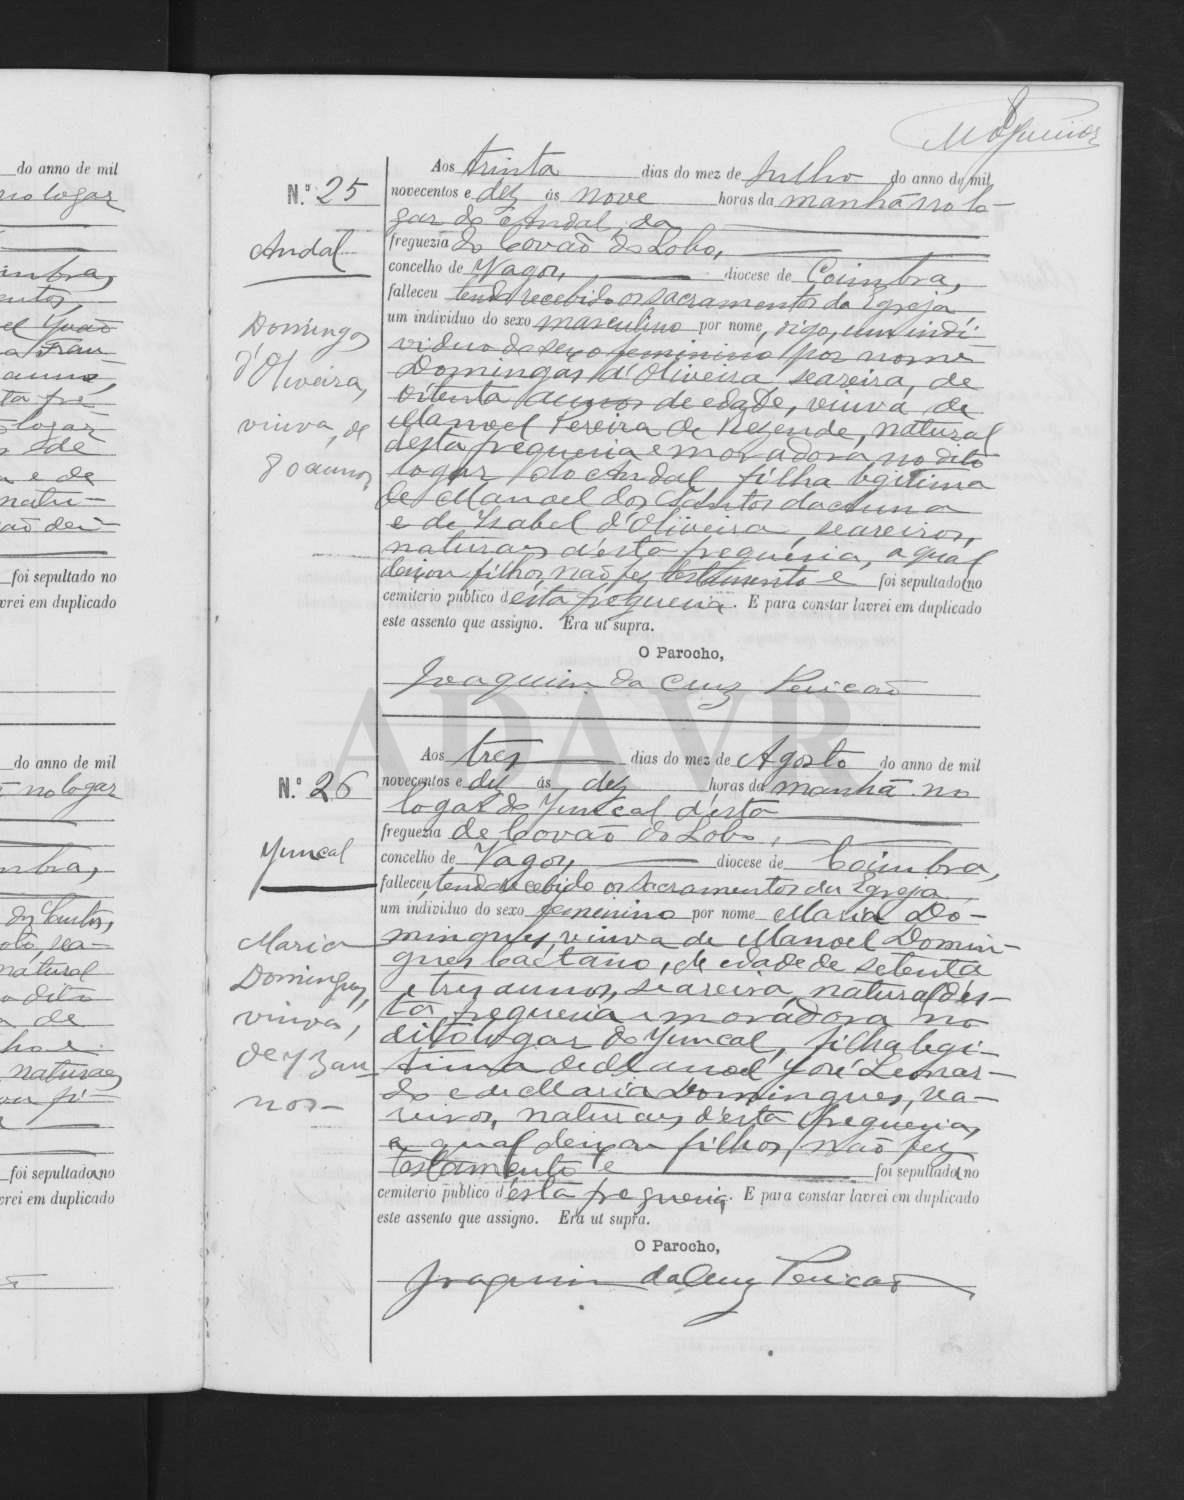 8
do anno de mil
no logar
foi sepultado no
vrei em duplicado
do anno de mil
no logar
foi sepultado no
vrei em duplicado
N.º 25
Andal
Domingas
d'Oliveira,
viuva, de
80 annos
Aos trinta dias do mez de Julho do anno de mil
novecentos e dez ás nove horas da manhã no lo-
gar do Andal, da
freguezia do Covão do Lobo,
concelho de Vagos, diocese de Coimbra,
falleceu tendo recebido os sacramentos da Egreja
um individuo do sexo masculino por nome, digo, um indi-
viduo do sexo feminino por nome
Domingas d'Oliveira, seareira, de
oitenta annos de edade, viuva de
Manoel Pereira de Rezende, natural
desta freguezia e moradora no dito
logar do Andal, filha legitima
de Manoel dos Santos da Cunha
e de Izabel d'Oliveira, seareiros,
naturaes d'esta freguezia, a qual
deixou filhos, não fez testamento e foi sepultado no
cemiterio publico d'esta freguezia. E para constar lavrei em duplicado
este assento que assigno. Era ut supra.
O Parocho,
Joaquim da Cruz Pericão
ADAVR
N.º 26
Juncal
Maria
Domingues,
viuva,
de 73 an-
nos-
Aos tres dias do mez de Agosto do anno de mil
novecentos e dez ás dez horas da manhã no
logar do Juncal d'esta
freguezia de Covão do Lobo,
concelho de Vagos, diocese de Coimbra,
falleceu, tendo recebido os sacramentos da Egreja
um individuo do sexo feminino por nome Maria Do-
mingues, viuva de Manoel Domin-
gues Caetano, de edade de setenta
e tres annos, seareira, natural d'es-
ta freguezia e moradora no
dito logar do Juncal, filha legi-
tima de Manoel José Leonar-
do e de Maria Domingues, sea-
reiros, naturaes d'esta freguezia,
a qual deixou filhos, não fez
testamento e foi sepultado no
cemiterio publico d'esta freguezia. E para constar lavrei em duplicado
este assento que assigno. Era ut supra.
O Parocho,
Joaquim da Cruz Pericão